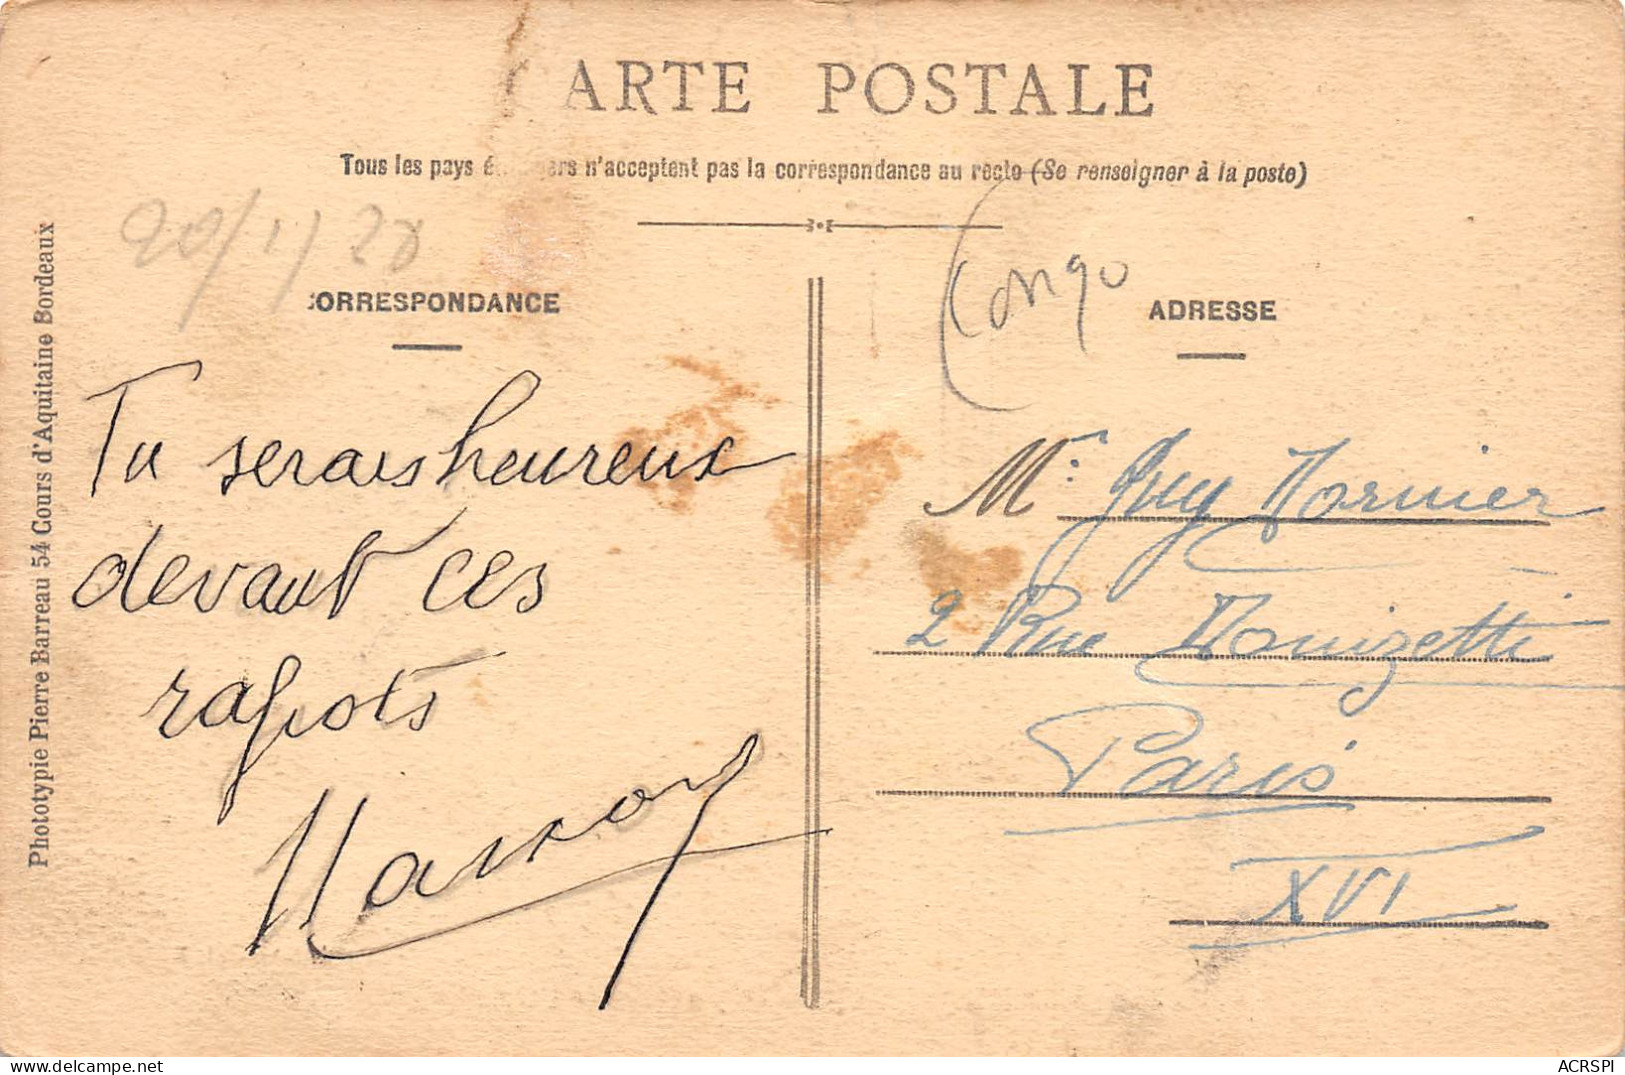 ARTE POSTALE
Tous les pays é ers n'acceptent pas la correspondance au recto (Se renseigner à la poste)
20/1/28
CORRESPONDANCE
Congo
ADRESSE
Tu serais heureux
devant ces
rapots
Mr. Guy
2 Rue Donizetti
Paris
XVI
Phototypie Pierre Barreau 54 Cours d'Aquitaine Bordeaux
delcampe.net
ACRSPI